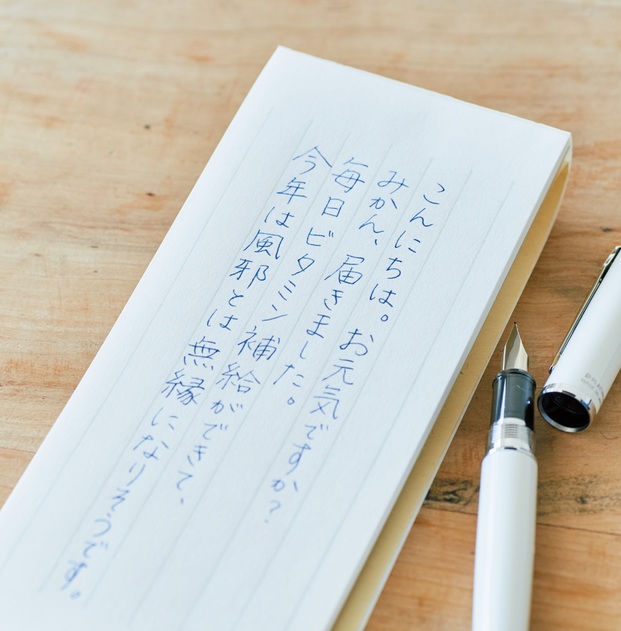 こんにちは。お元気ですか?
みかん、届きました。
毎日ビタミン補給ができて、
今年は風邪とは無縁になりそうです。